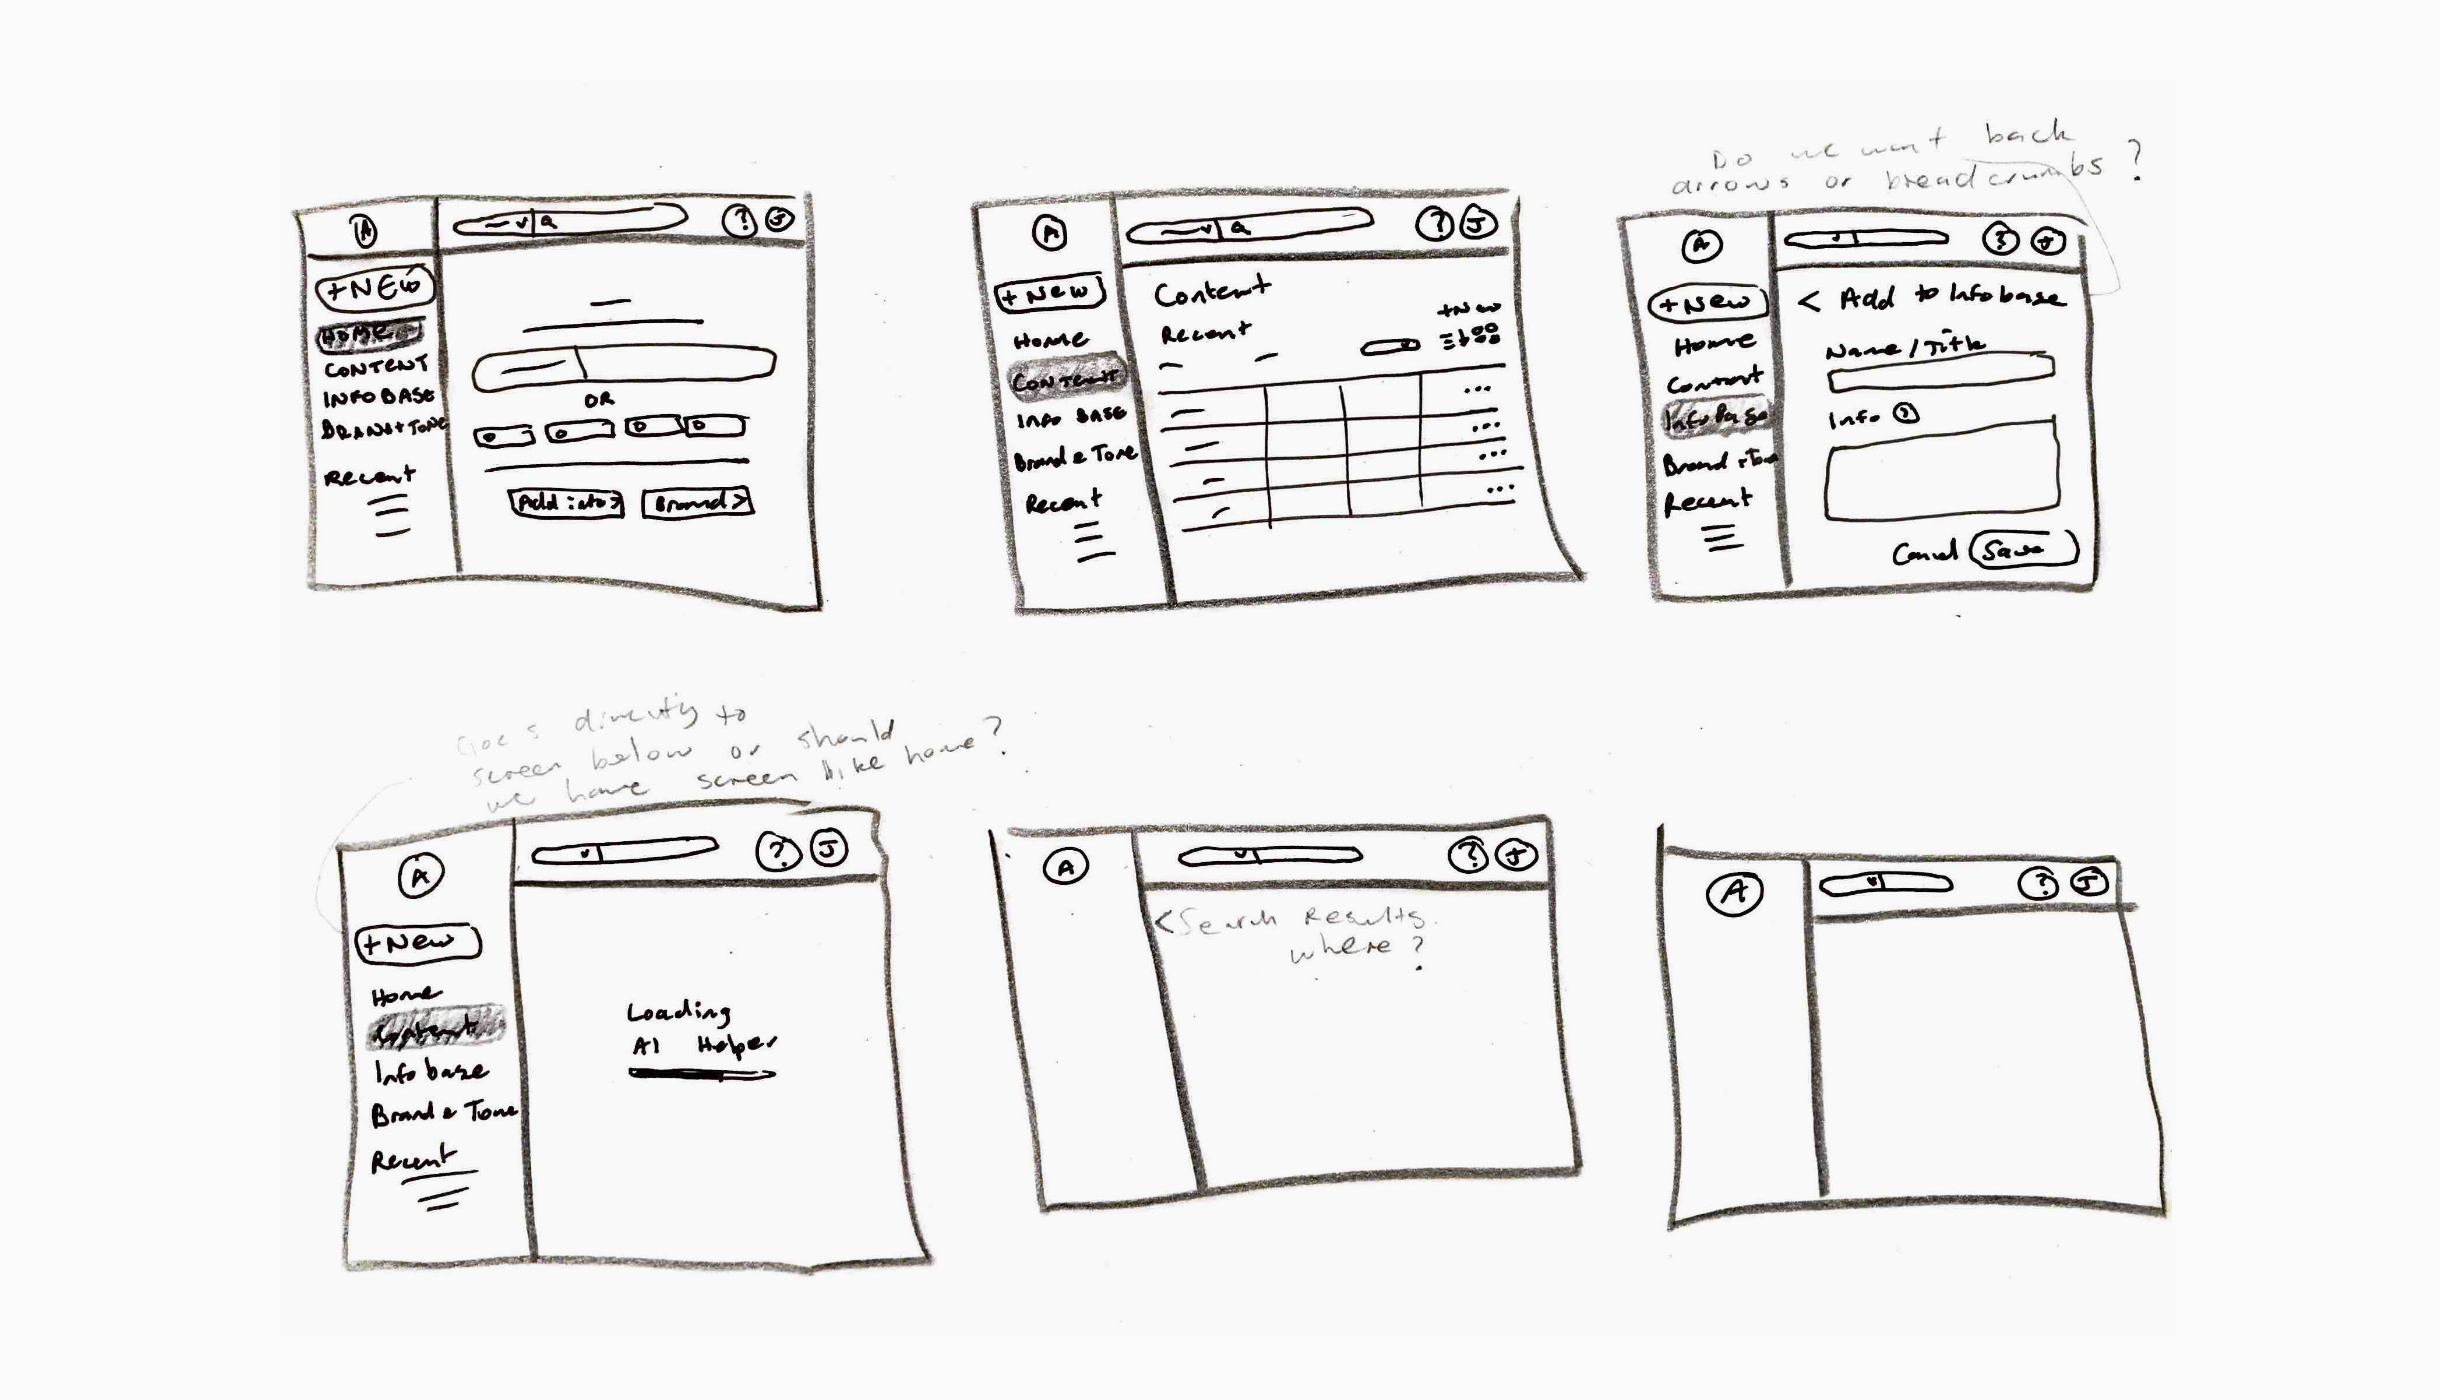 A
? J
+ NEW
HOME
CONTENT
INFO BASE
BRAND + TONE
Recent
OR
Add info >
Brand >
A
? J
+ New
Home
Content
INFO BASE
Brand & Tone
Recent
Content
Recent
+ New
...
...
...
...
Do we want back
arrows or breadcrumbs ?
A
? J
+ New
Home
Content
Info Base
Brand + Tone
Recent
< Add to Infobase
Name / Title
Info ?
Cancel Save
Goes directly to
screen below or should
we have screen like home?
A
? J
+ New
Home
Content
Info base
Brand & Tone
Recent
Loading
AI Helper
A
? J
< Search Results.
where ?
A
? J